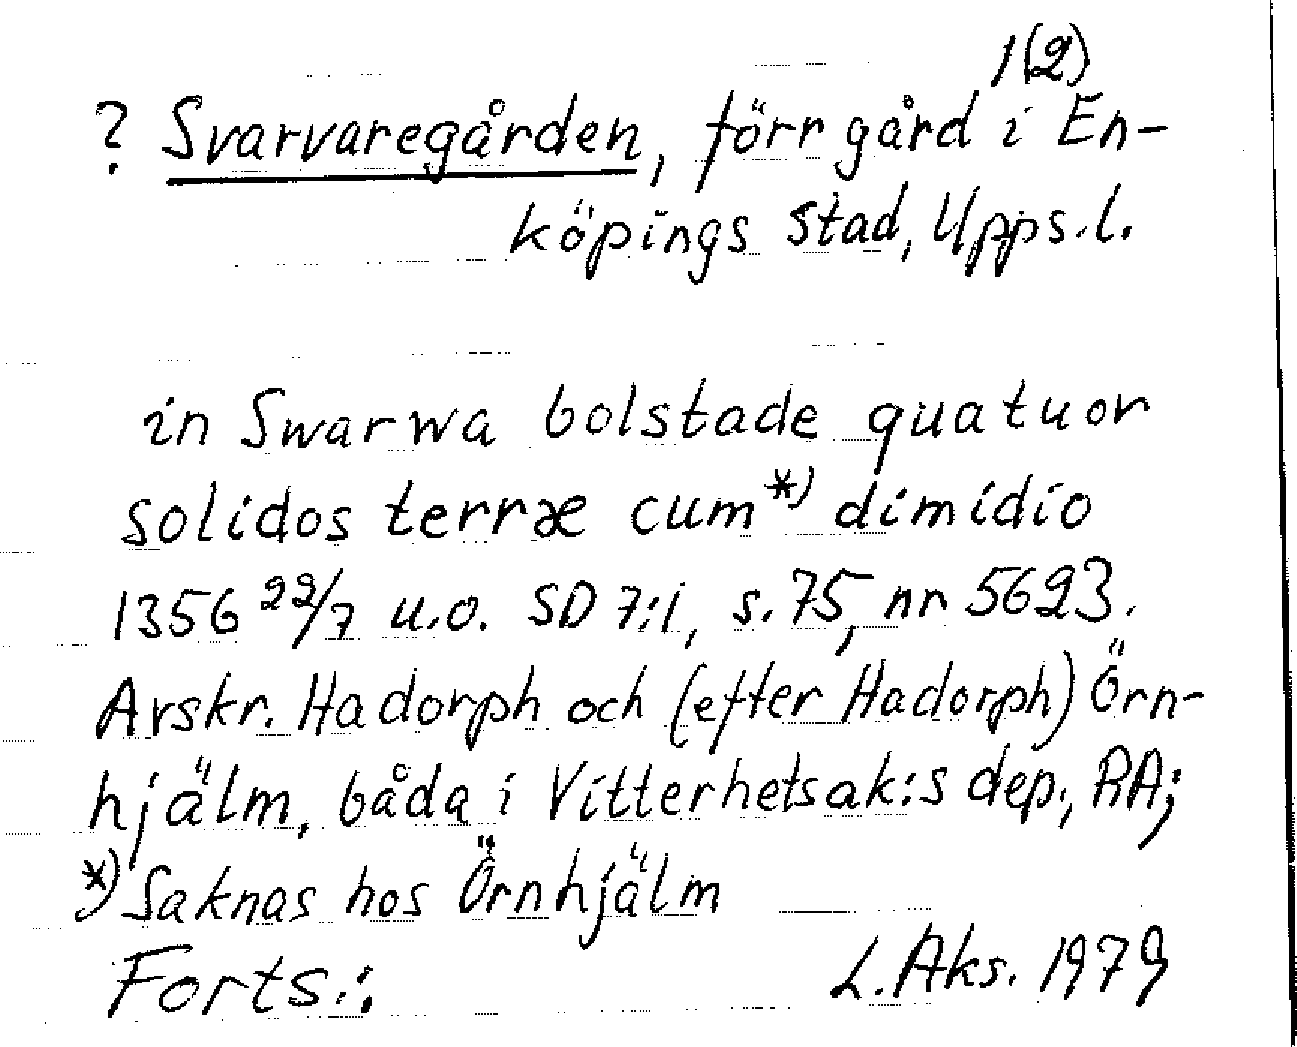 1(2)
? Svarvaregården, förr gård i En-
köpings stad, Upps.l.
in Swarwa bolstade quatuor
solidos terræ cum*) dimidio
1356 22/7 u.o. SD 7:1, s. 75, nr 5623.
Avskr. Hadorph och (efter Hadorph) Örn-
hjälm, båda i Vitterhetsak:s dep., RA;
*) Saknas hos Örnhjälm
Forts.:
L. Aks. 1979